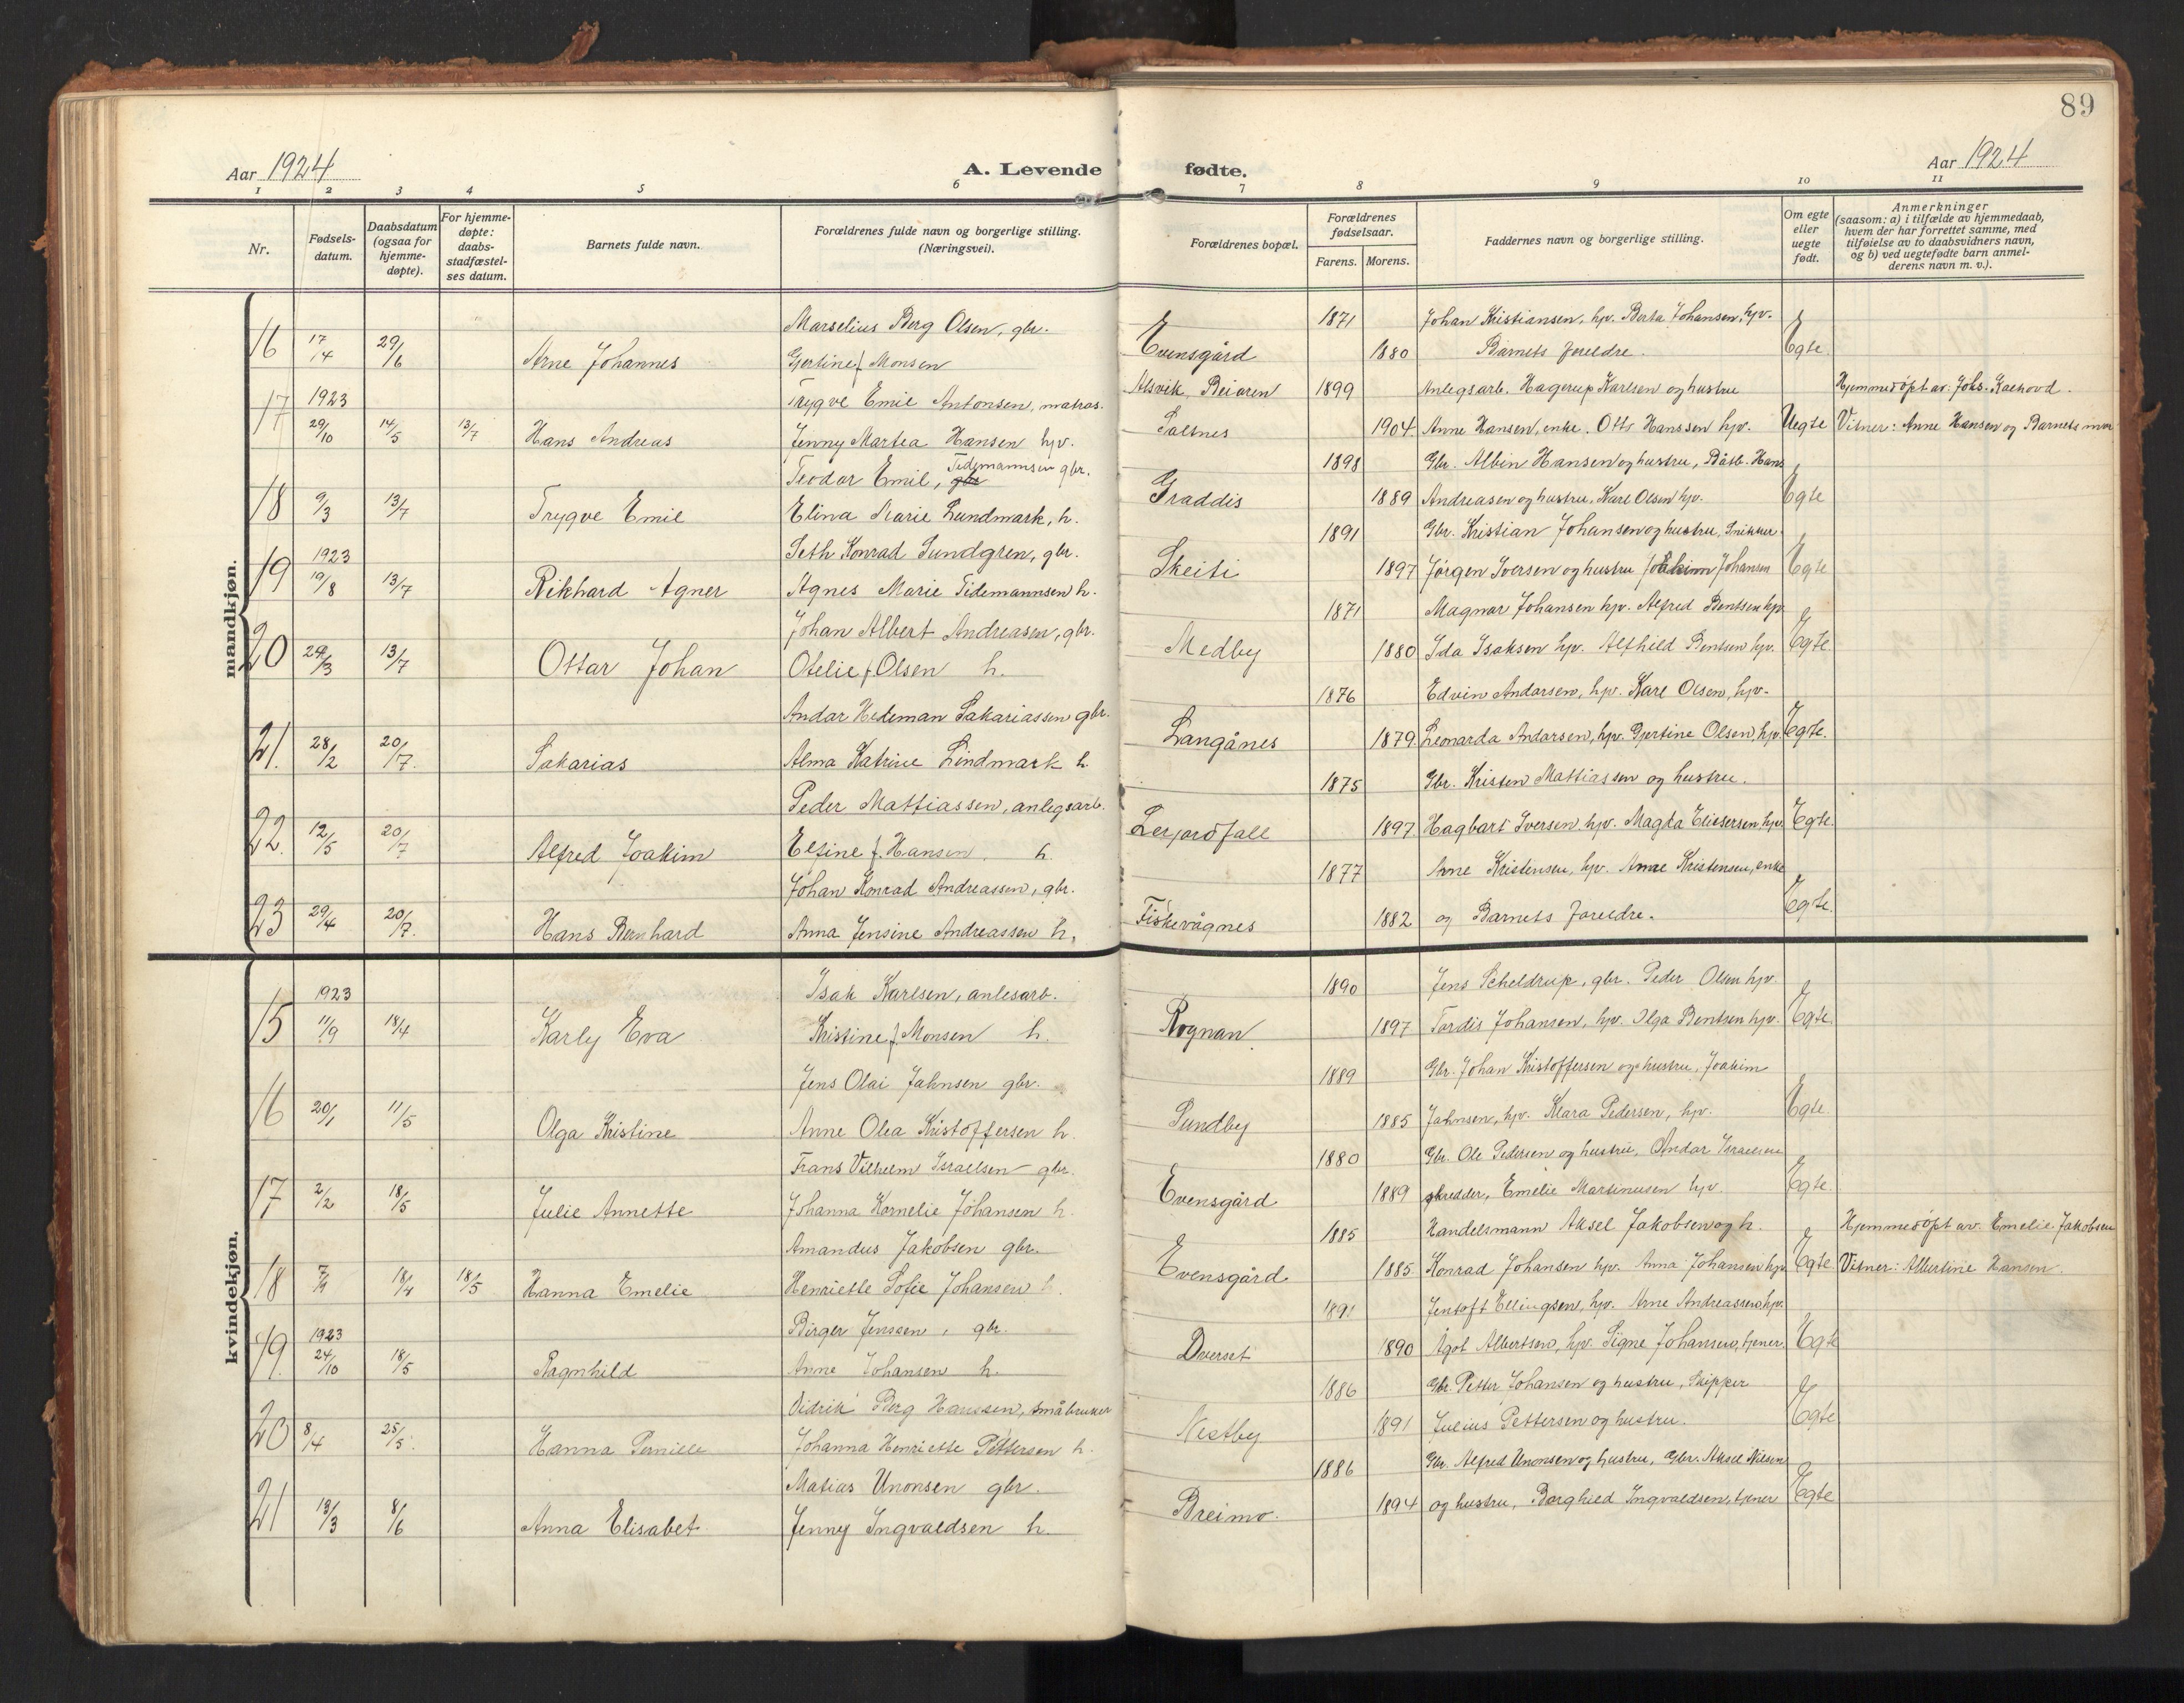 89
Aar 1924 A. Levende fødte. Aar 1924
1 2 3 4 5 6 7 8 9 10 11
Nr.
Fødsels-
datum.
Daabsdatum
(ogsaa for
hjemme-
døpte).
For hjemme-
døpte:
daabs-
stadfæstel-
ses datum.
Barnets fulde navn.
Forældrenes fulde navn og borgerlige stilling.
(Næringsvei).
Forældrenes bopæl.
Forældrenes
fødselsaar.
Farens. Morens.
Faddernes navn og borgerlige stilling.
Om egte
eller
uegte
født.
Anmerkninger
(saasom: a) i tilfælde av hjemmedaab,
hvem der har forrettet samme, med
tilføielse av to daabsvidners navn,
og b) ved uegtefødte barn anmel-
derens navn m. v.).
mandkjøn.
Marselius Berg Olsen, gbr. 1871 Johan Kristiansen, hp. Berta Johansen, hp.
16 17/4 29/6 Arne Johannes Gjertine f. Monsen Evensgård 1880 Barnets foreldre. Egte.
1923 Trygve Emil Antonsen, matros. Alsvik, Beiaren 1899 Anlegsarb. Hagerup Karlsen og hustru Hjemmedøpt av: Johs.
17 29/10 14/5 13/7 Hans Andreas Jenny Martea Hansen hp. Saltnes 1904. Anne Hansen, enke. Otto Hanssen hp. Uegte Vitner: Anne Hansen og Barnets mor
Teodor Emil, Tidemannsen gbr. 1898 Gbr. Albin Hansen og hustru, Båtb. Hans
18 9/3 13/7 Trygve Emil Elina Marie Lundmark, h. Graddis 1889 Andreasen og hustru, Karl Olsen hp. Egte
1923 Seth Konrad Sundgren, gbr. 1891 Gbr. Kristian Johansen og hustru, Snikker
19 19/8 13/7 Rikhard Agner Agnes Marie Tidemannsen h. Skeiti 1897 Jørgen Iversen og hustru Joakim Johansen Egte
Johan Albert Andreasen, gbr. 1871 Magnar Johansen hp. Alfred Bentsen hp.
20 29/3 13/7 Ottar Johan Otelie f. Olsen h. Medby 1880 Ida Isaksen hp. Alfhild Bentsen hp. Egte
Andor Hedeman Sakariassen gbr. 1876 Edvin Andorsen, hp. Karl Olsen, hp.
21. 28/2 20/7. Sakarias Alma Katrine Lindmark h. Langånes 1879. Leonarda Andorsen, hp. Gjertine Olsen, hp. Egte.
Peder Mattiassen, anlegsarb. 1875 Gbr. Kristen Mattiassen og hustru.
22. 12/5 20/7 Alfred Joakim Elfine f. Hansen. h. Lerjordfall 1897 Hagbart Iversen hp. Magda Eliesersen hp. Egte.
Johan Konrad Andreassen, gbr. 1877 Arne Kristensen, hp. Anne Kristensen, enke
23 29/4 20/7. Hans Bernhard Anna Jensine Andreassen h. Fiskevågnes 1882 og Barnets foreldre. Egte.
kvindekjøn.
1923 Isak Karlsen, anlesarb. 1890 Jens Scheldrup, gbr. Peder Olsen hp.
15 11/9 18/4 Karly Eva Kristine f. Monsen h. Rognan. 1897 Tordis Johansen, hp. Olga Bentsen hp. Egte.
Jens Olai Jahnsen gbr. 1889 Gbr. Johan Kristoffersen og hustru, Joakim
16 20/1 11/5 Olga Kristine Anne Olea Kristoffersen h. Sundby 1885 Jahnsen, hp. Klara Pedersen, hp. Egte.
Frans Vilhelm Israelsen gbr. 1880 Gbr. Ole Pedersen og hustru, Andor Israelsen
17 2/2 18/5 Julie Annette Johanna Kornelie Johansen h. Evensgård 1889 skredder, Emelie Martinusen hp. Egte.
Amandus Jakobsen gbr. 1885 Handelsmann Aksel Jakobsen og h. Hjemmedøpt av. Emelie Jakobsen
18 18/4 18/5 Hanna Emelie Henriette Sofie Johansen h. Evensgård 1885 Konrad Johansen hp. Anna Johansen hp. Egte Vitner: Albertine Hansen.
1923 Birger Jenssen, gbr. 1891 Jentoft Ellingsen, hp. Arne Andreassen hp.
19. 24/10 18/5 Ragnhild Anne Johansen h. Dverset 1890 Ågot Albertsen, hp. Signe Johansen, tjener. Egte
Didrik Berg Hanssen, småbruker 1886 Gbr. Petter Johansen og hustru, Skipper
20 8/4 25/5. Hanna Pernille Johanna Henriette Pettersen h. Nestby 1891 Julius Pettersen og hustru. Egte
Matias Unonsen gbr. 1886 Gbr. Alfred Unonsen og hustru, Gbr. Aksel Nilsen
21 13/3 8/6 Anna Elisabet Jenny Ingvaldsen h. Breimo. 1894 og hustru, Borghild Ingvaldsen, tjener Egte